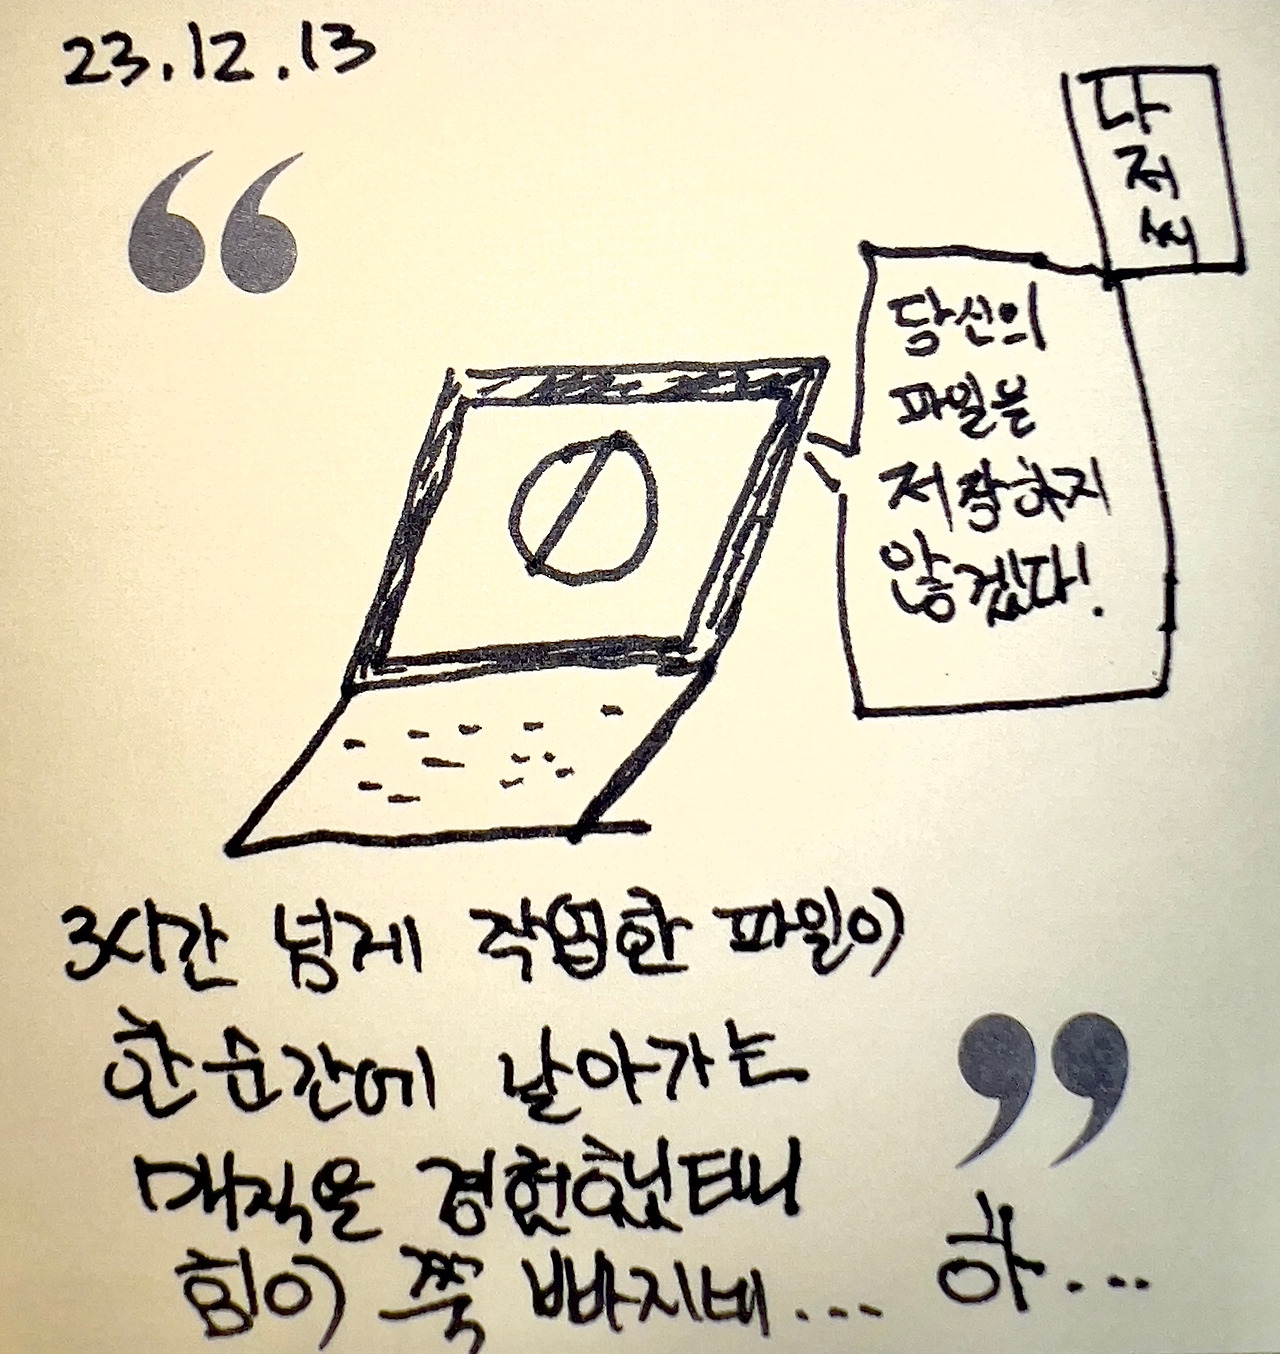 23.12.13
다
저
씨
당신의
파일을
저장하지
않겠다!
3시간 넘게 작업한 파일이
한순간에 날아가는
매직을 경험했더니
힘이 쭉 빠지네...
하...